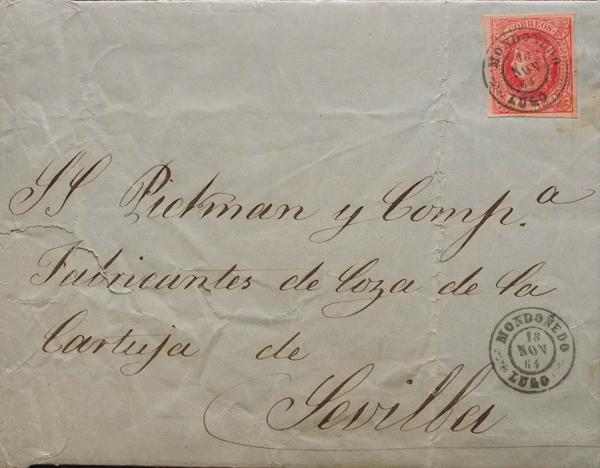 CORREOS
MONDOÑEDO
18
NOV
64
LUGO
SS Pickman y Comp.ª
Fabricantes de loza de la
Cartuja de
Sevilla
MONDOÑEDO
18
NOV
64
LUGO